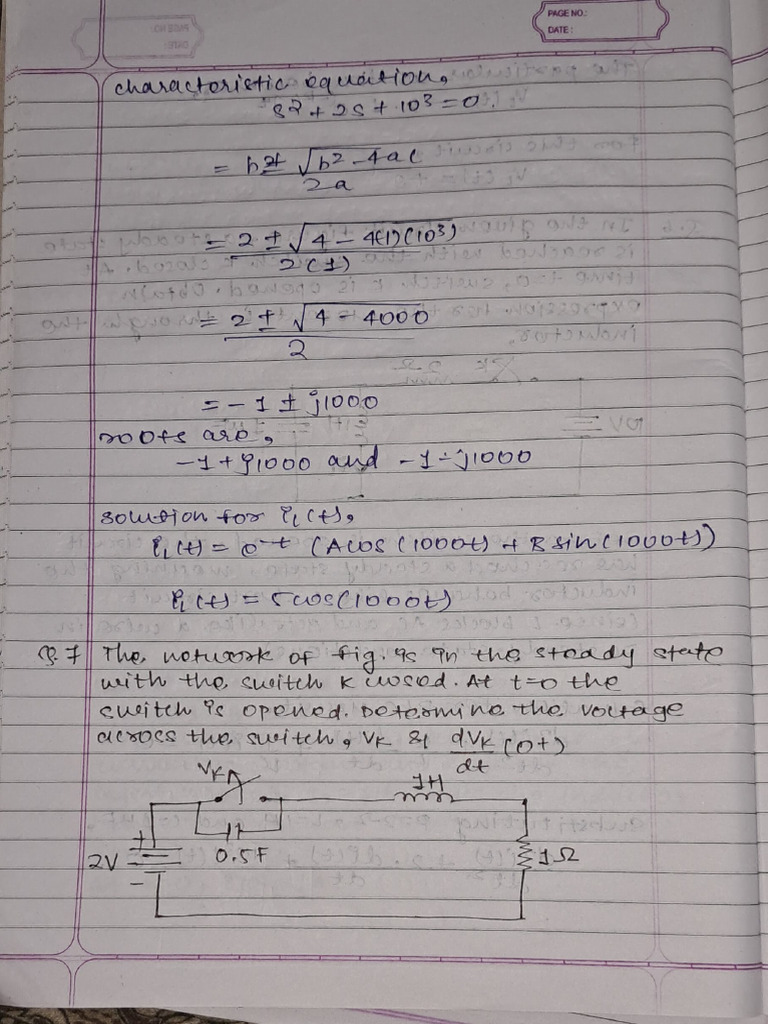 PAGE NO.:
DATE:
characteristic equation,
s² + 2s + 10³ = 0.
= b ± √b² - 4ac
2a
= 2 ± √4 - 4(1)(10³)
2(1)
= 2 ± √4 - 4000
2
= -1 ± j1000
roots are,
-1 + j1000 and -1 - j1000
solution for iL(t),
iL(t) = e^-t (A cos(1000t) + B sin(1000t))
iL(t) = 5 cos(1000t)
Q.7 The network of fig. is in the steady state
with the switch K closed. At t=0 the
switch is opened. Determine the voltage
across the switch, VK & dVK/dt (0+)
VK
1H
2V
+
-
0.5F
1Ω